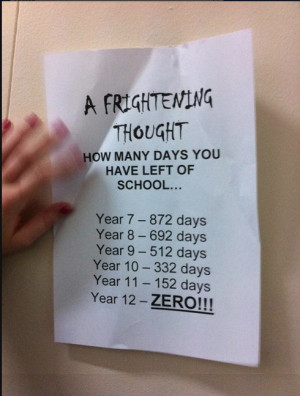 A FRIGHTENING
THOUGHT
HOW MANY DAYS YOU
HAVE LEFT OF
SCHOOL...
Year 7 – 872 days
Year 8 – 692 days
Year 9 – 512 days
Year 10 – 332 days
Year 11 – 152 days
Year 12 – ZERO!!!